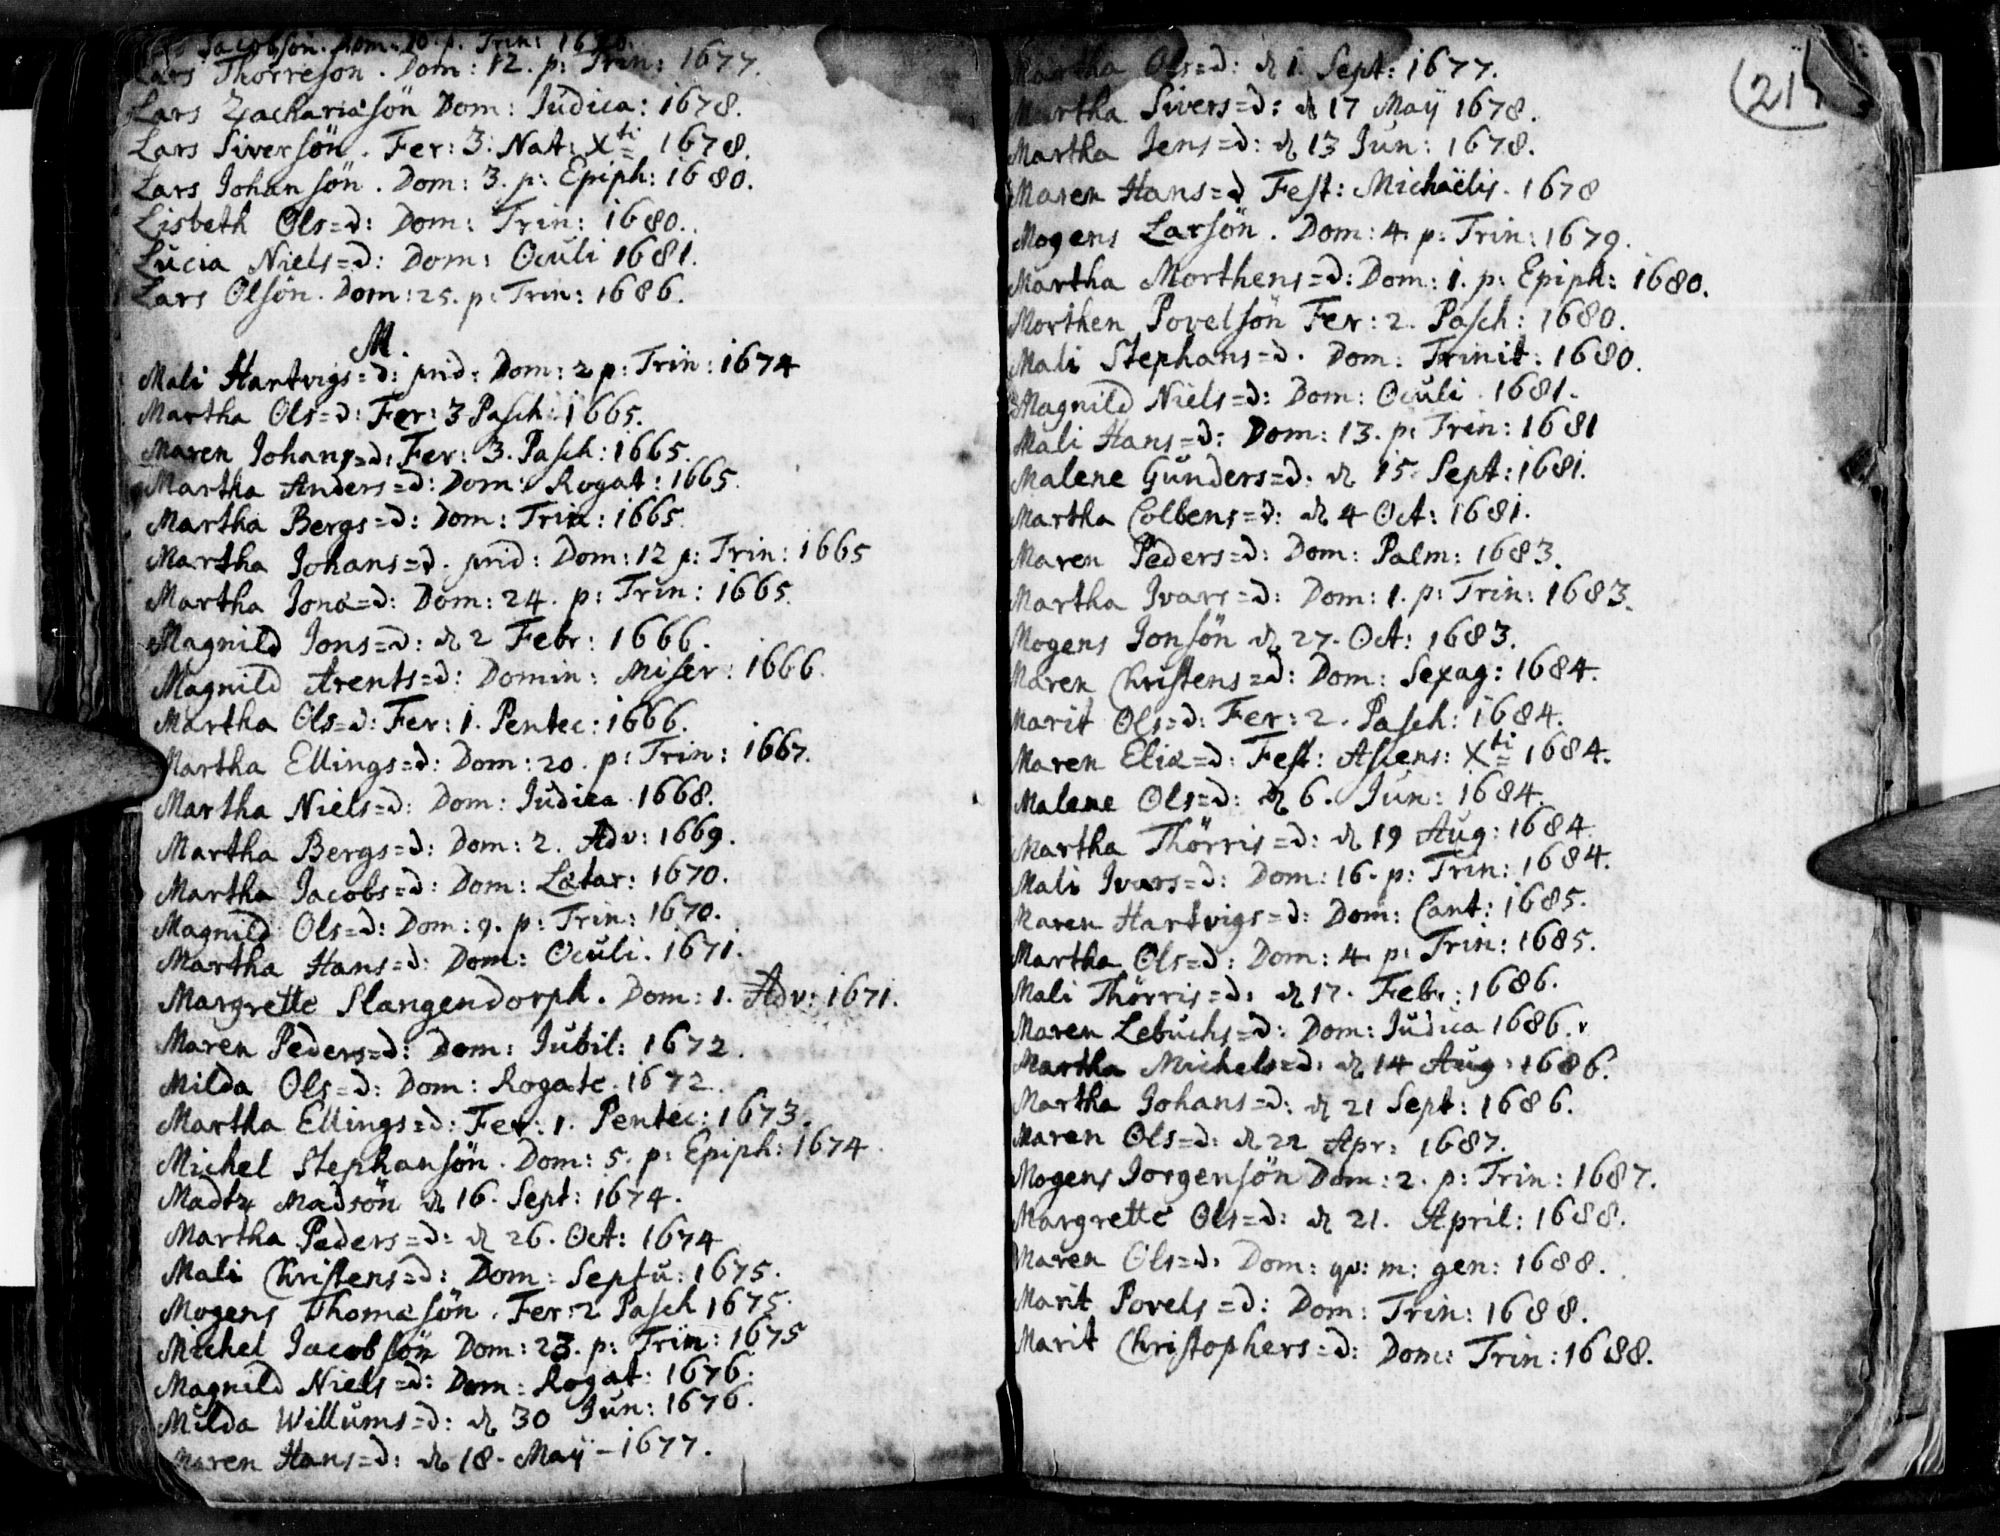 Jacobsön. Dom: 20. p. Trin:
Lars Thorresön. Dom: 12. p: Trin: 1677.
Lars Zachariæsön Dom: Judica: 1678.
Lars Siversön. Fer: 3. Nat: Xti 1678.
Lars Johansön. Dom: 3. p: Epiph: 1680.
Lisbeth Ols=d: Dom: Trin: 1680.
Lucia Niels=d: Dom: Oculi 1681.
Lars Olsön. Dom: 25. p: Trin: 1686.
M.
Mali Hartvigs=d: prid: Dom: 2 p: Trin: 1674
Martha Ols=d: Fer: 3 Pasch: 1665.
Maren Johans=d: Fer: 3. Pasch: 1665.
Martha Anders=d: Dom: Rogat: 1665.
Martha Bergs=d: Dom: Trin: 1665.
Martha Johans=d. prid: Dom: 12 p: Trin: 1665
Martha Jonæ=d: Dom: 24. p: Trin: 1665.
Magnild Jons=d: d 2 Febr: 1666.
Magnild Arents=d: Domin: Miser: 1666.
Martha Ols=d: Fer: 1. Pentec: 1666.
Martha Ellings=d: Dom: 20. p: Trin: 1667.
Martha Niels=d: Dom: Judica 1668.
Martha Bergs=d: Dom: 2. Adv: 1669.
Martha Jacobs=d: Dom: Lætar: 1670.
Magnild Ols=d: Dom: 9. p: Trin: 1670.
Martha Hans=d: Dom: Oculi. 1671.
Margrette Slangendorph. Dom: 1. Adv: 1671.
Maren Peders=d: Dom: Jubil: 1672.
Milda Ols=d: Dom: Rogate. 1672.
Martha Ellings=d: Fer: 1. Pentec: 1673.
Michel Stephansön. Dom: 5. p: Epiph: 1674.
Madtz Madsön d 16. Sept: 1674.
Martha Peders=d: d 26. Oct: 1674
Mali Christens=d: Dom: Septu: 1675.
Mogens Thomæsön. Fer: 2 Pasch 1675.
Michel Jacobsön Dom: 23. p: Trin: 1675
Magnild Niels=d: Dom: Rogat: 1676.
Milda Willums=d: d 30 Jun: 1676.
Maren Hans=d: d 18. Maÿ - 1677.
(21
Martha Ols=d: d 1. Sept: 1677.
Martha Sivers=d: d 17 Maÿ 1678.
Martha Jens=d: d 13 Jun: 1678.
Maren Hans=d Fest: Michaëlis. 1678
Mogens Larsön. Dom: 4. p: Trin: 1679.
Martha Morthens=d: Dom: 1. p: Epiph: 1680.
Morthen Povelsön Fer: 2. Pasch: 1680.
Mali Stephans=d. Dom: Trinit: 1680.
Magnild Niels=d: Dom: Oculi. 1681.
Mali Hans=d: Dom: 13. p: Trin: 1681
Malene Gunders=d: d 15. Sept: 1681.
Martha Colbens=d: d 4 Oct: 1681.
Maren Peders=d: Dom: Palm: 1683.
Martha Ivars=d: Dom: 1. p: Trin: 1683.
Mogens Jonsön d 27. Oct: 1683.
Maren Christens=d: Dom: Sexag: 1684.
Marit Ols=d: Fer: 2. Pasch: 1684.
Maren Eliæ=d: Fest: Ascens: Xti 1684.
Malene Ols=d: d 6. Jun: 1684.
Martha Thörris=d: d 19 Aug: 1684.
Mali Ivars=d: Dom: 16. p: Trin: 1684.
Maren Hartvigs=d: Dom: Cant: 1685.
Martha Ols=d: Dom: 4. p: Trin: 1685.
Mali Thörris=d: d 17. Febr: 1686.
Maren Lebuchs=d: Dom: Judica 1686.
Martha Michels=d: d 14 Aug: 1686.
Martha Johans=d: d 21 Sept: 1686.
Maren Ols=d: d 22 Apr: 1687.
Mogens Jorgensön Dom: 2. p: Trin: 1687.
Margrette Ols=d: d 21. April: 1688.
Maren Ols=d: Dom: qv: m: gen: 1688.
Marit Povels=d: Dom: Trin: 1688.
Marit Christophers=d: Dom: Trin: 1688.